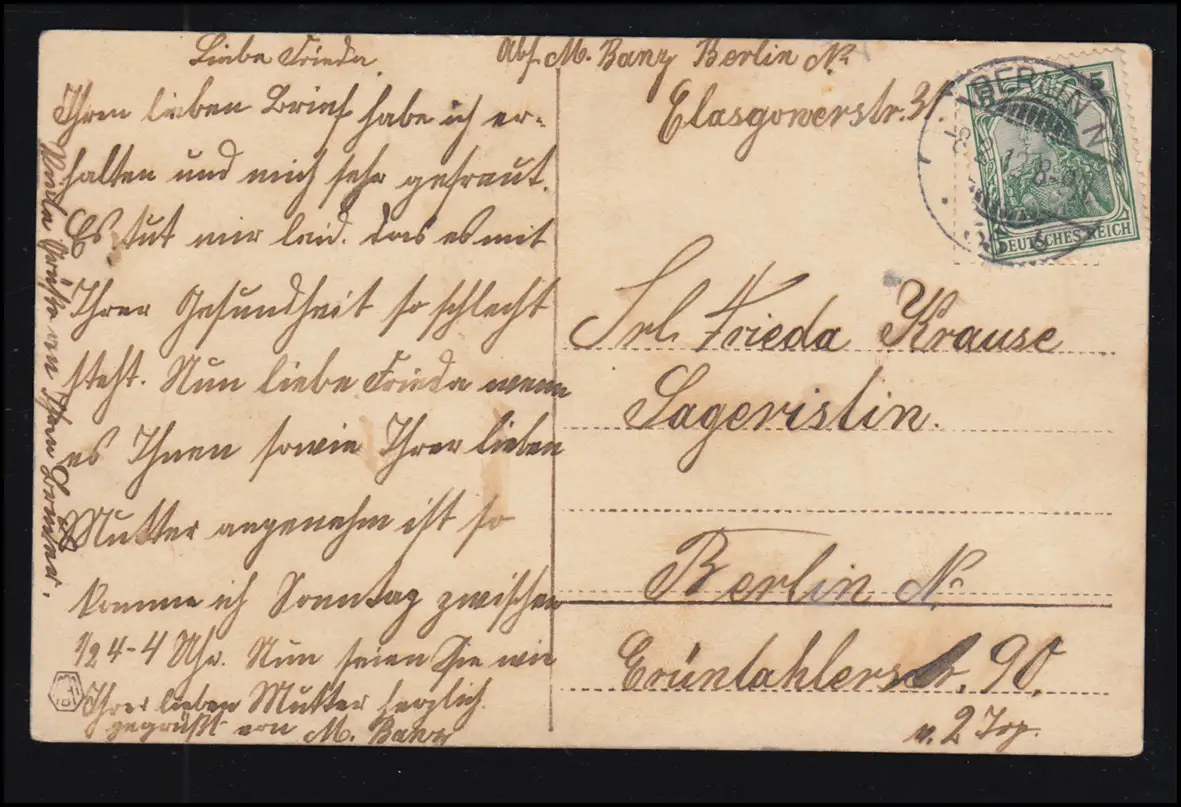 Liebe Frieda.
Ihren lieben Brief habe ich er-
halten und mich sehr gefraut.
Es tut mir leid. das es mit
Ihrer Gesundheit so schlecht
steht. Nun liebe Frieda wenn
es Ihnen sowie Ihrer lieben
Mutter angenehm ist so
komme ich Sonntag zwischen
1/2 4-4 Uhr. Nun seien Sie wie
Ihrer lieben Mutter herzlich
gegrüßt von M. Banz
Viele Grüße von
Abs. M. Banz Berlin N.
Glasgowerstr. 31.
BERLIN N
12 8-9
5
DEUTSCHES REICH
Frl. Frieda Krause
Lageristin.
Berlin N.
Grüntahlerstr. 90.
v. 2 Trp.